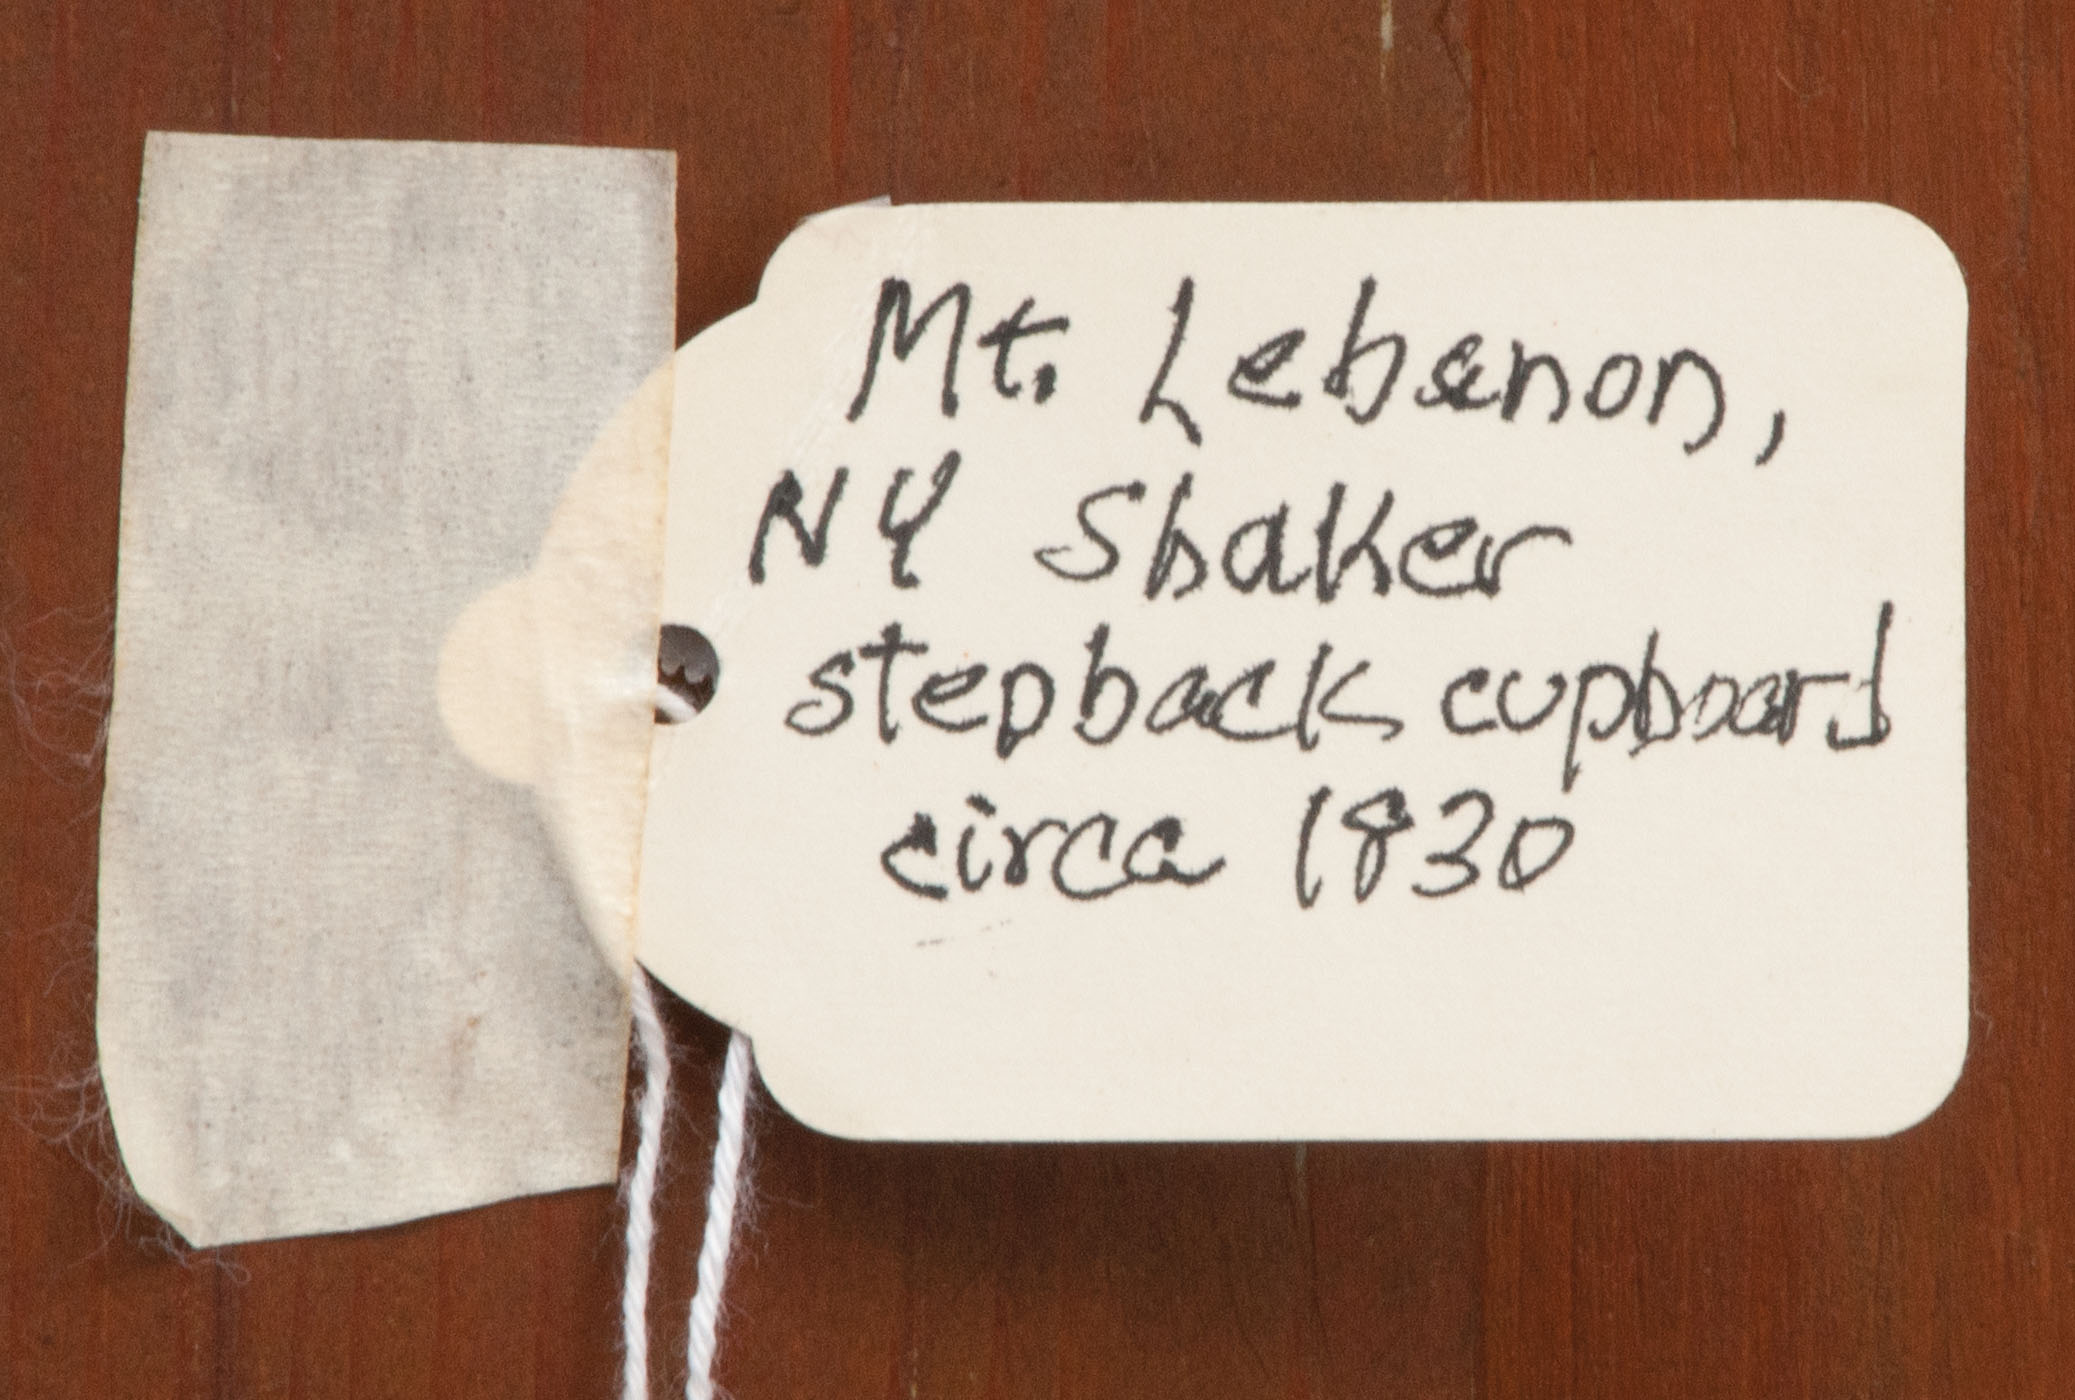 Mt. Lebanon,
NY Shaker
stepback cupboard
circa 1830